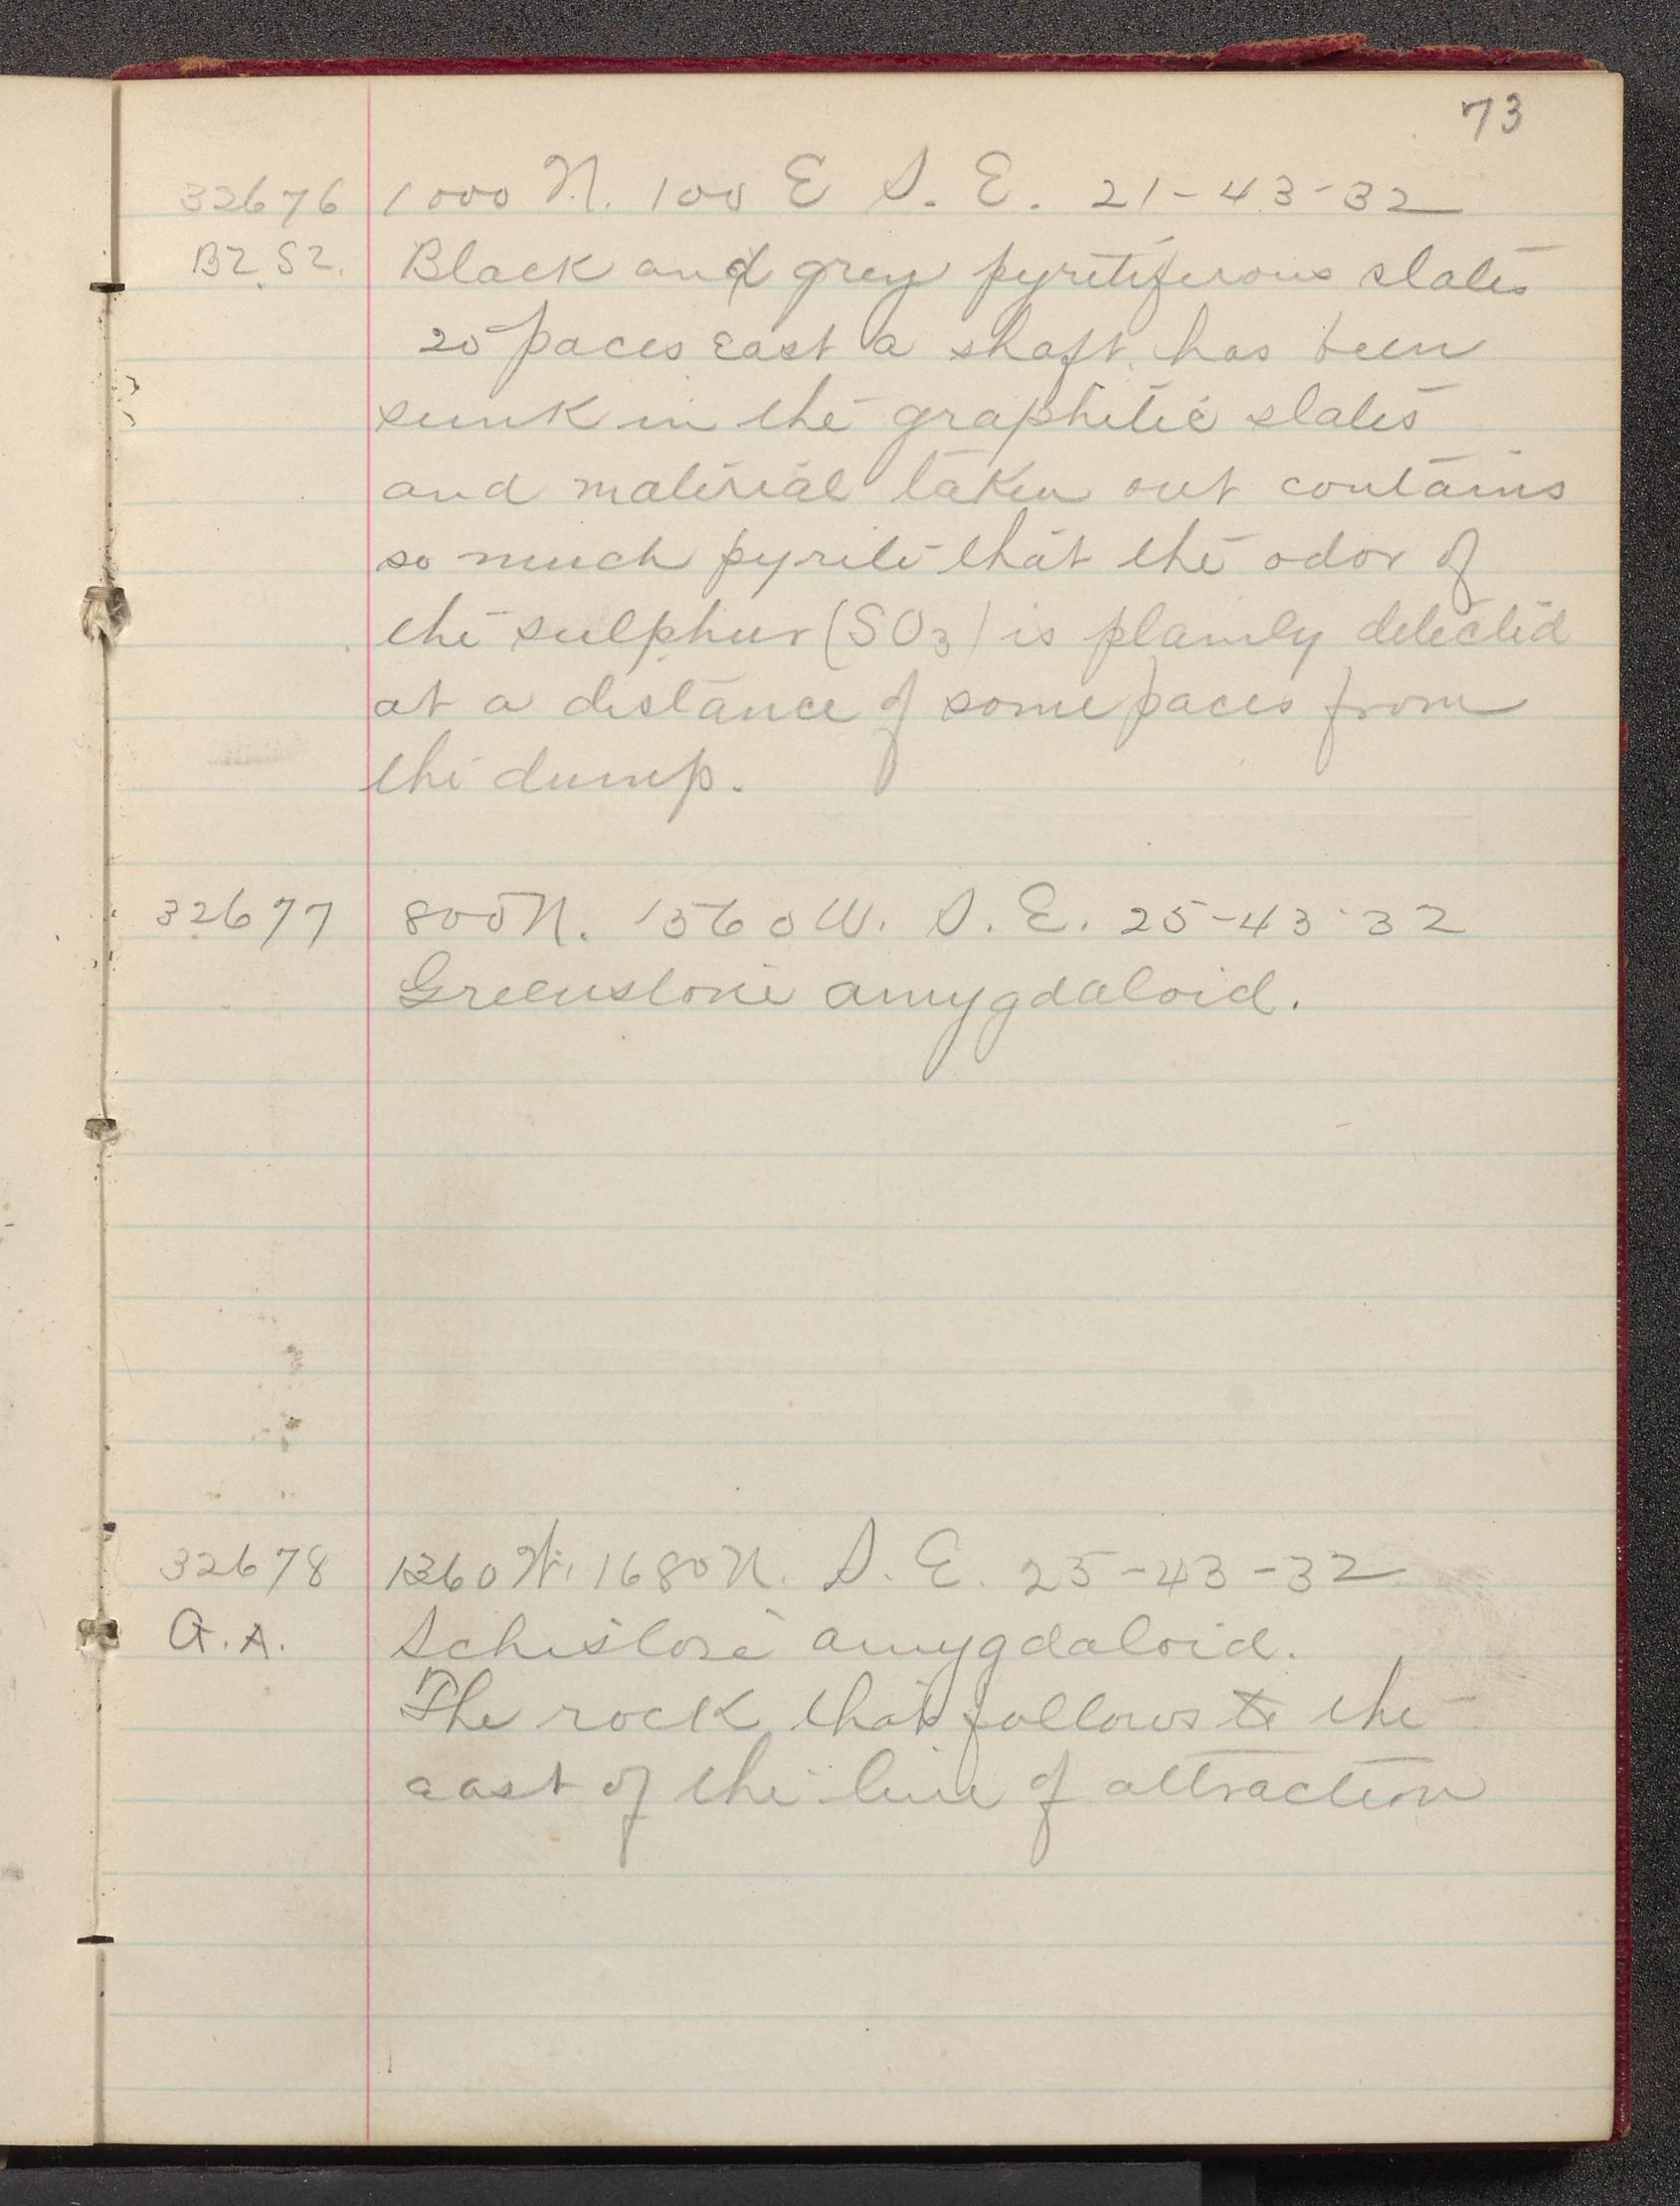 73
32676 1000 N. 100 E S. E. 21-43-32
BZ SZ. Black and grey pyritiferous slates
20 paces east a shaft has been
sunk in the graphitic slates
and material taken out contains
so much pyrite that the odor of
the sulphur (SO3) is plainly detected
at a distance of some paces from
the dump.
32677 800 N. 1560 W. S. E. 25-43-32
Greenstone amygdaloid.
32678 1360 W. 1680 N. S. E. 25-43-32
A. Schistose amygdaloid.
The rock that follows to the
east of the line of attraction